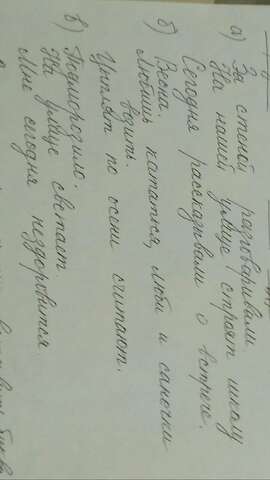 а) За стеной разговаривали.
На нашей улице строят школу
Сегодня рассказывали о встрече.
б) Весна.
Любишь кататься, люби и саночки
возить.
Цыплят по осени считают.
в) Подморозило.
На улице светает.
Мне сегодня нездоровится.